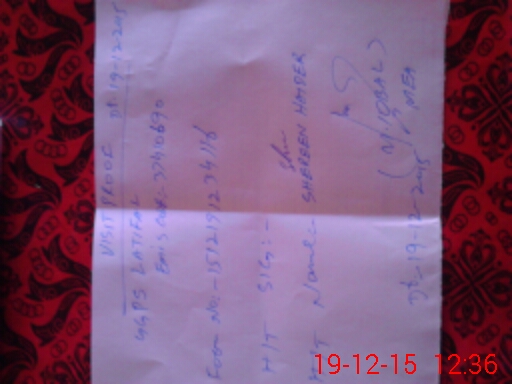 VISIT PROOF Dt. 19-12-2015
GGPS LATIFAL
Emis Code:- 37410690
Form No:- 1512191234116
H/T SIG:-
H/T Name:- SHEREEN HAIDER
(M. IQBAL)
MEA
Dt. 19-12-2015
19-12-15 12:36